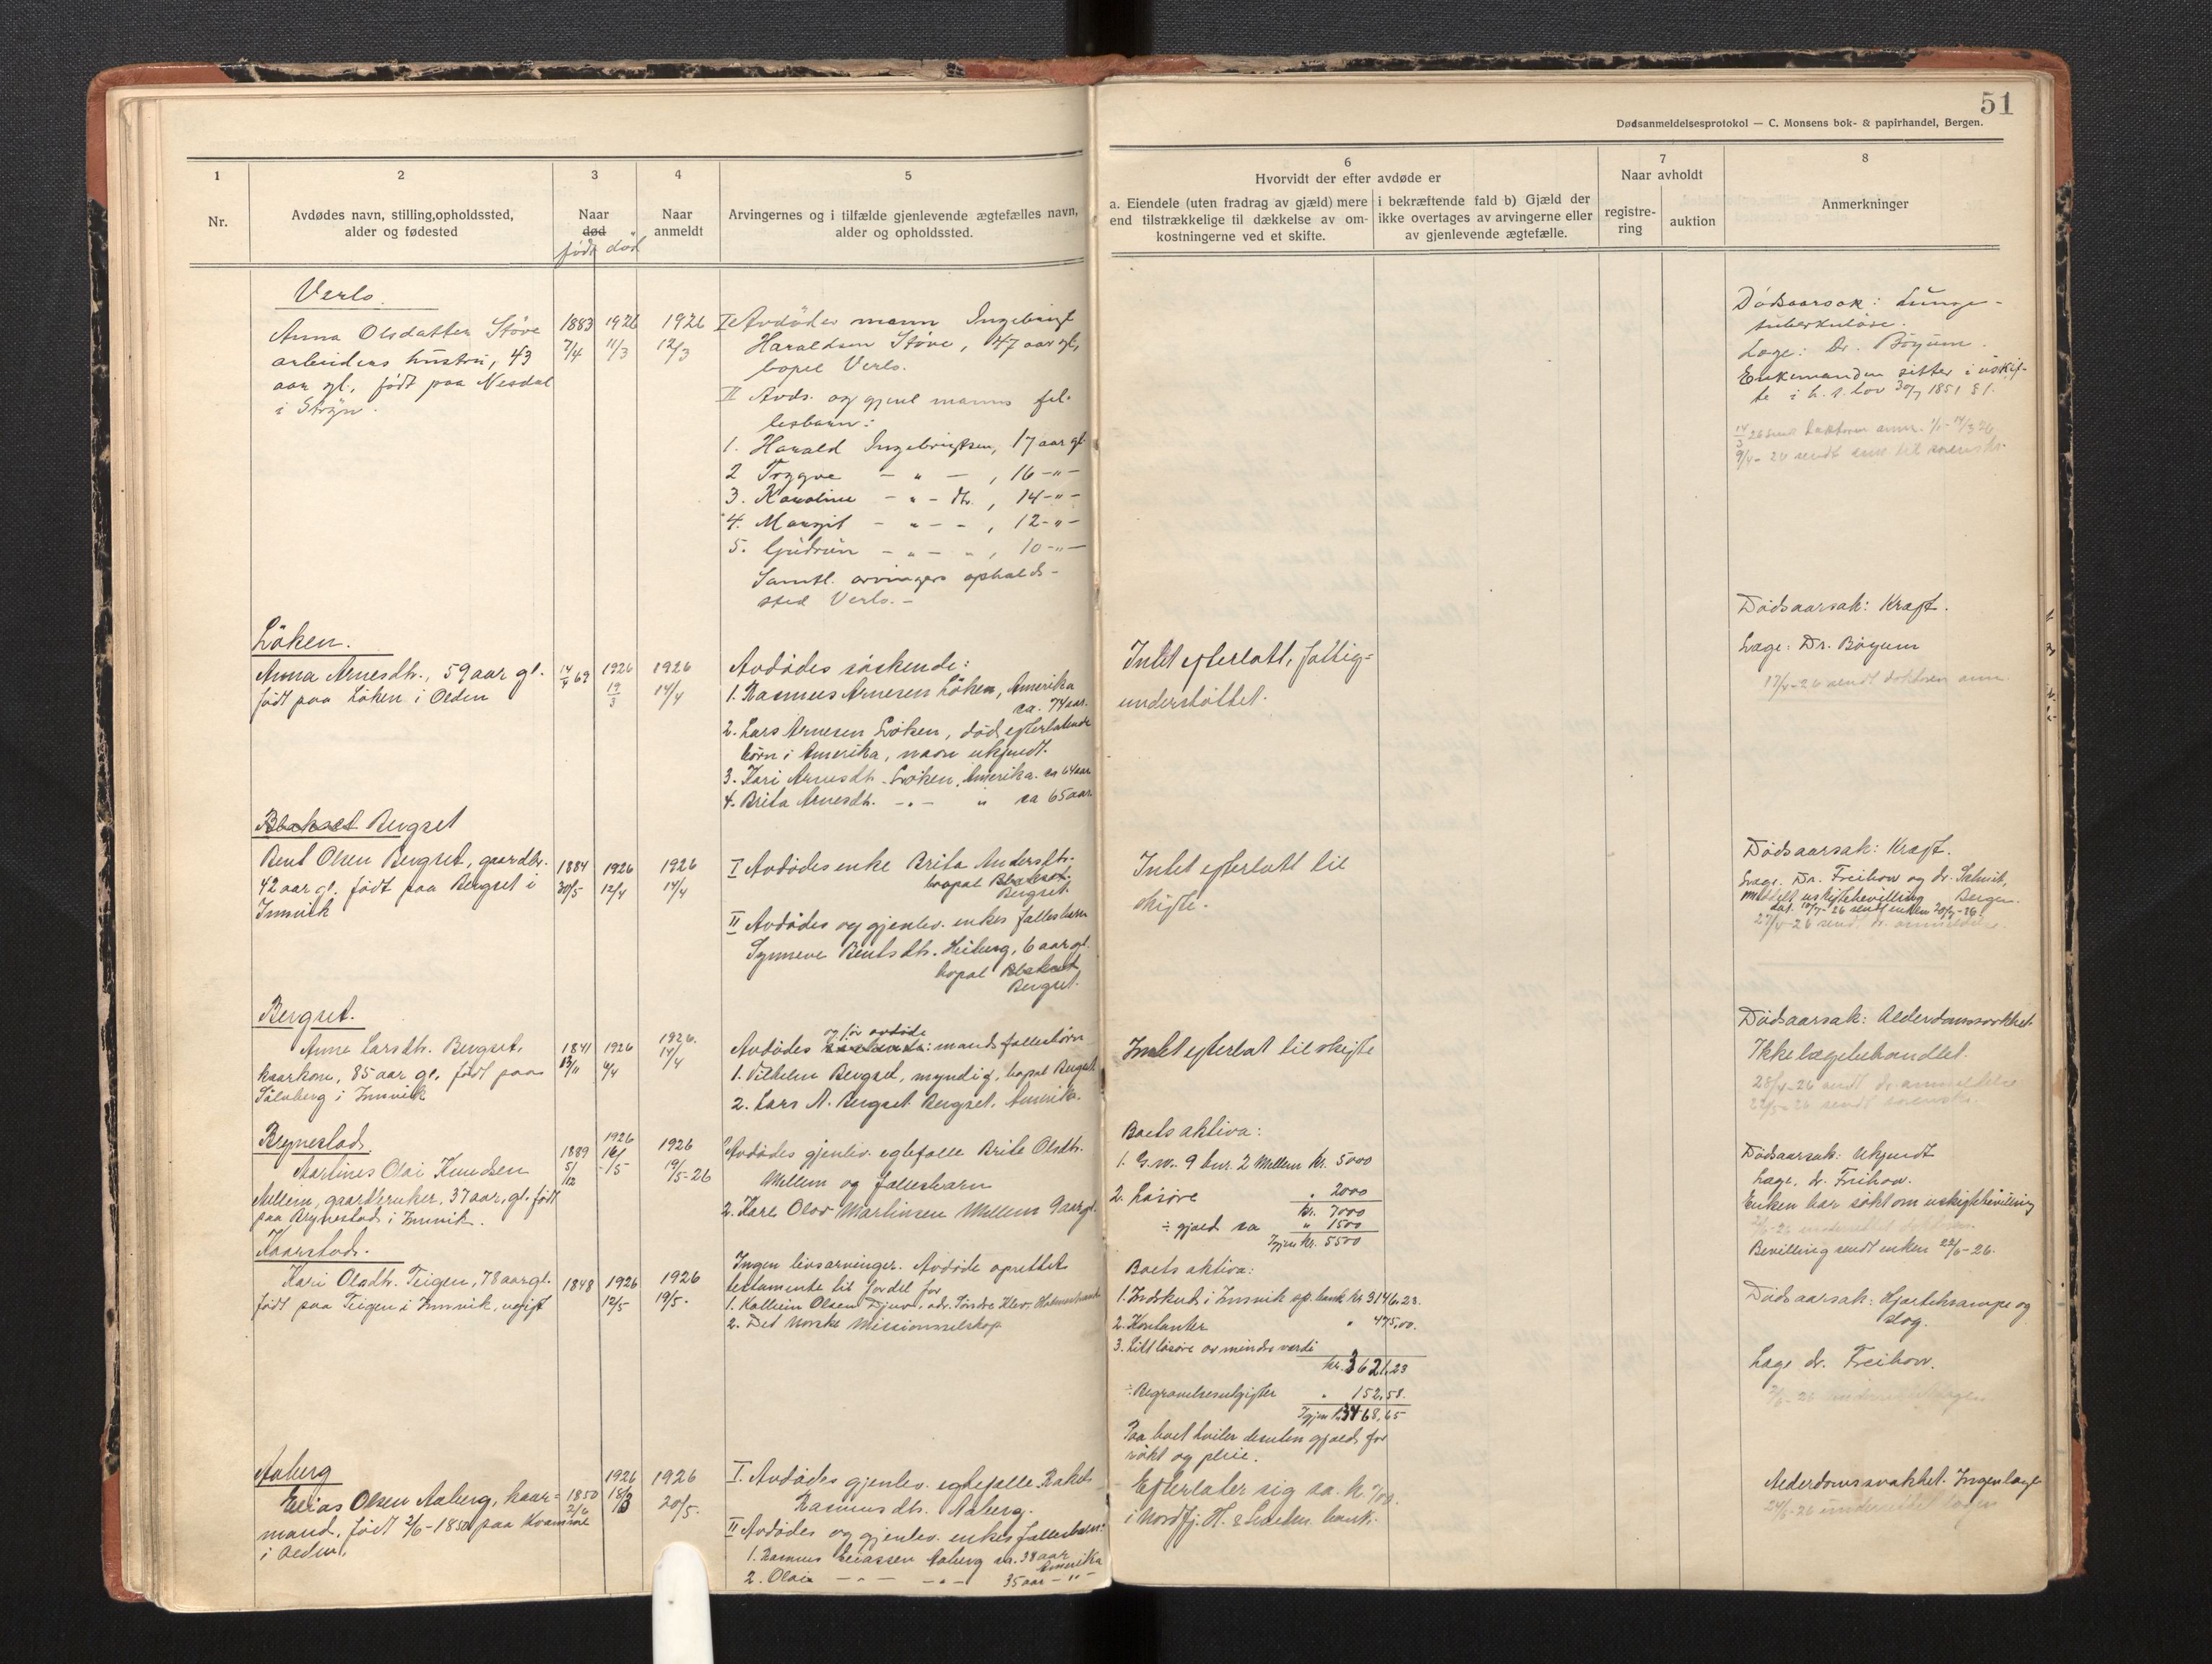 51
Dødsanmeldelsesprotokol — C. Monsens bok- & papirhandel, Bergen.
1
Nr.
2
Avdødes navn, stilling, opholdssted,
alder og fødested
3
Naar
død
født død
4
Naar
anmeldt
5
Arvingernes og i tilfælde gjenlevende ægtefælles navn,
alder og opholdssted.
6
Hvorvidt der efter avdøde er
a. Eiendele (uten fradrag av gjæld) mere
end tilstrækkelige til dækkelse av om-
kostningerne ved et skifte.
i bekræftende fald b) Gjæld der
ikke overtages av arvingerne eller
av gjenlevende ægtefælle.
7
Naar avholdt
registre-
ring
auktion
8
Anmerkninger
Verlo.
Anna Olsdatter Störe
arbeiders hustru, 43
aar gl., født paa Nesdal
i Stryn.
1883
7/4
1926
11/3
1926
12/3
I Avdödes mann Ingebrigt
Haraldsen Störe, 47 aar gl,
bopel Verlo.
II Avds. og gjenl manns fel-
lesbarn:
1. Harald Ingebrigtsen, 17 aar gl
2 Trygve - " - , 16 - " -
3. Karoline - " - dtr. , 14 - " -
4. Margit - " - - , 12 - " -
5. Gudrun - " - " , 10 - " -
Samtl. arvingers opholds-
sted Verlo. -
Dödsaarsak: Lunge-
tuberkulöse.
Læge: Dr. Böyum.
Enkemanden sitter i uskif-
te i h. t. lov 30/7 1851 § 1.
Löken.
Anna Arnesdtr., 59 aar gl.
født paa Löken i Olden
14/4 69
1926
19/3
1926
14/4
Avdödes söskende:
1. Rasmus Arnesen Löken, Amerika
ca. 74 aar.
2. Lars Arnesen Löken, död, efterlatende
börn i Amerika, navn ukjendt.
3. Kari Arnesdtr. Löken, Amerika. ca 64 aar
4. Brita Arnesdtr. - " - " ca 65 aar
Intet efterlatt, fattig-
understöttet.
Dödsaarsak: Kræft.
Læge: Dr. Böyum
17/4-26 sendt doktoren anm.
Blakset Bergset
Bent Olsen Bergset, gaardbr.
42 aar gl. født paa Bergset i
Innvik
1884
30/5
1926
12/4
1926
14/4
I Avdödes enke Brita Andersdtr.
bopæl Blakset.
Bergset.
II Avdödes og gjenlev. enkes fællesbarn
Synneve Bentsdtr. Heiberg, 6 aar gl.
bopæl Blakset
Bergset.
Intet efterlatt til
skifte.
Dödsaarsak: Kræft.
Læge: Dr. Freihow og dr. Salvit,
Bergen.
Meddelt uskiftebevilling
Bergset.
Anne Larsdtr. Bergset,
kaarkone, 85 aar gl. født paa
Sölvberg i Innvik
1841
13/11
1926
4/4
1926.
14/4
og før avdöde
Avdödes mands fællesbörn
1. Vilhelm Bergset, myndig, bopæl Bergset
2. Lars A. Bergset Bergset, Innvik.
Intet efterlat til skifte
Dödsaarsak: Alderdomssvakhet.
Ikke lægebehandlet.
28/4-26 sendt dr. anmeldelse
Brynestad.
Martines Olai Knudsen
Mellem, gaardbruker, 37 aar, gl. født
paa Brynestad i Innvik.
1889
5/12
1926
16/
-/5
1926
19/5-26
Avdödes gjenlev. egtefælle Brite Olsdtr.
Mellem og fællesbarn
2. Karl Olav Martinsen Mellem 9 aar gl.
Boets aktiva:
1. G.nr. 9 bnr. 2 Mellem kr. 5000
2. Lösöre " 2000
kr. 7000
÷ gjæld ca " 1500
Igjen kr. 5500
Dödsaarsak: Ukjendt
Læge, dr. Freihow.
Enken har sökt om uskiftebevilling
Bevilling sendt enken 22/6-26.
Kaarstad.
Kari Olsdtr. Teigen, 78 aar gl.
født paa Teigen i Innvik, ugift
1848
1926
12/5
1926
19/5.
Ingen livsarvinger. Avdöde oprettet
testamente til fordel for
1. Kallein Olsen Djuv, adr. Söndre Klev, Holmestrand
2. Det Norske Missionsselskap
Boets aktiva:
1. Indskud i Innvik sp. bank kr. 3146.23.
2. Kontanter " 475,00.
3. Litt lösöre av mindre værdi
kr. 3621,23
÷ Begravelsesutgifter " 152,58.
Igjen kr. 3468,65
Paa boet hviler desuten gjæld for
rökt og pleie.
Dödsaarsak: Hjertekrampe og
slag.
Læge dr. Freihow.
Aaberg
Elias Olsen Aaberg, kaar-
mand, født 2/6-1850 paa Kvamme
i Olden.
1850
2/6
1926
18/3
1926
20/5.
I. Avdödes gjenlev. egtefælle Rakel
Rasmusdtr. Aaberg.
II Avdödes og gjenlev. enkes fællesbarn:
1. Rasmus Eliassen Aaberg ca. 38 aar
Amerika
2. Olai - " - - " - 35 aar - " -
Efterlater sig ca. kr. 700.
i Nordfj. H. & Landm. bank.
Alderdomssvakhet. Ingen læge
24/6-26 underrettet lægen